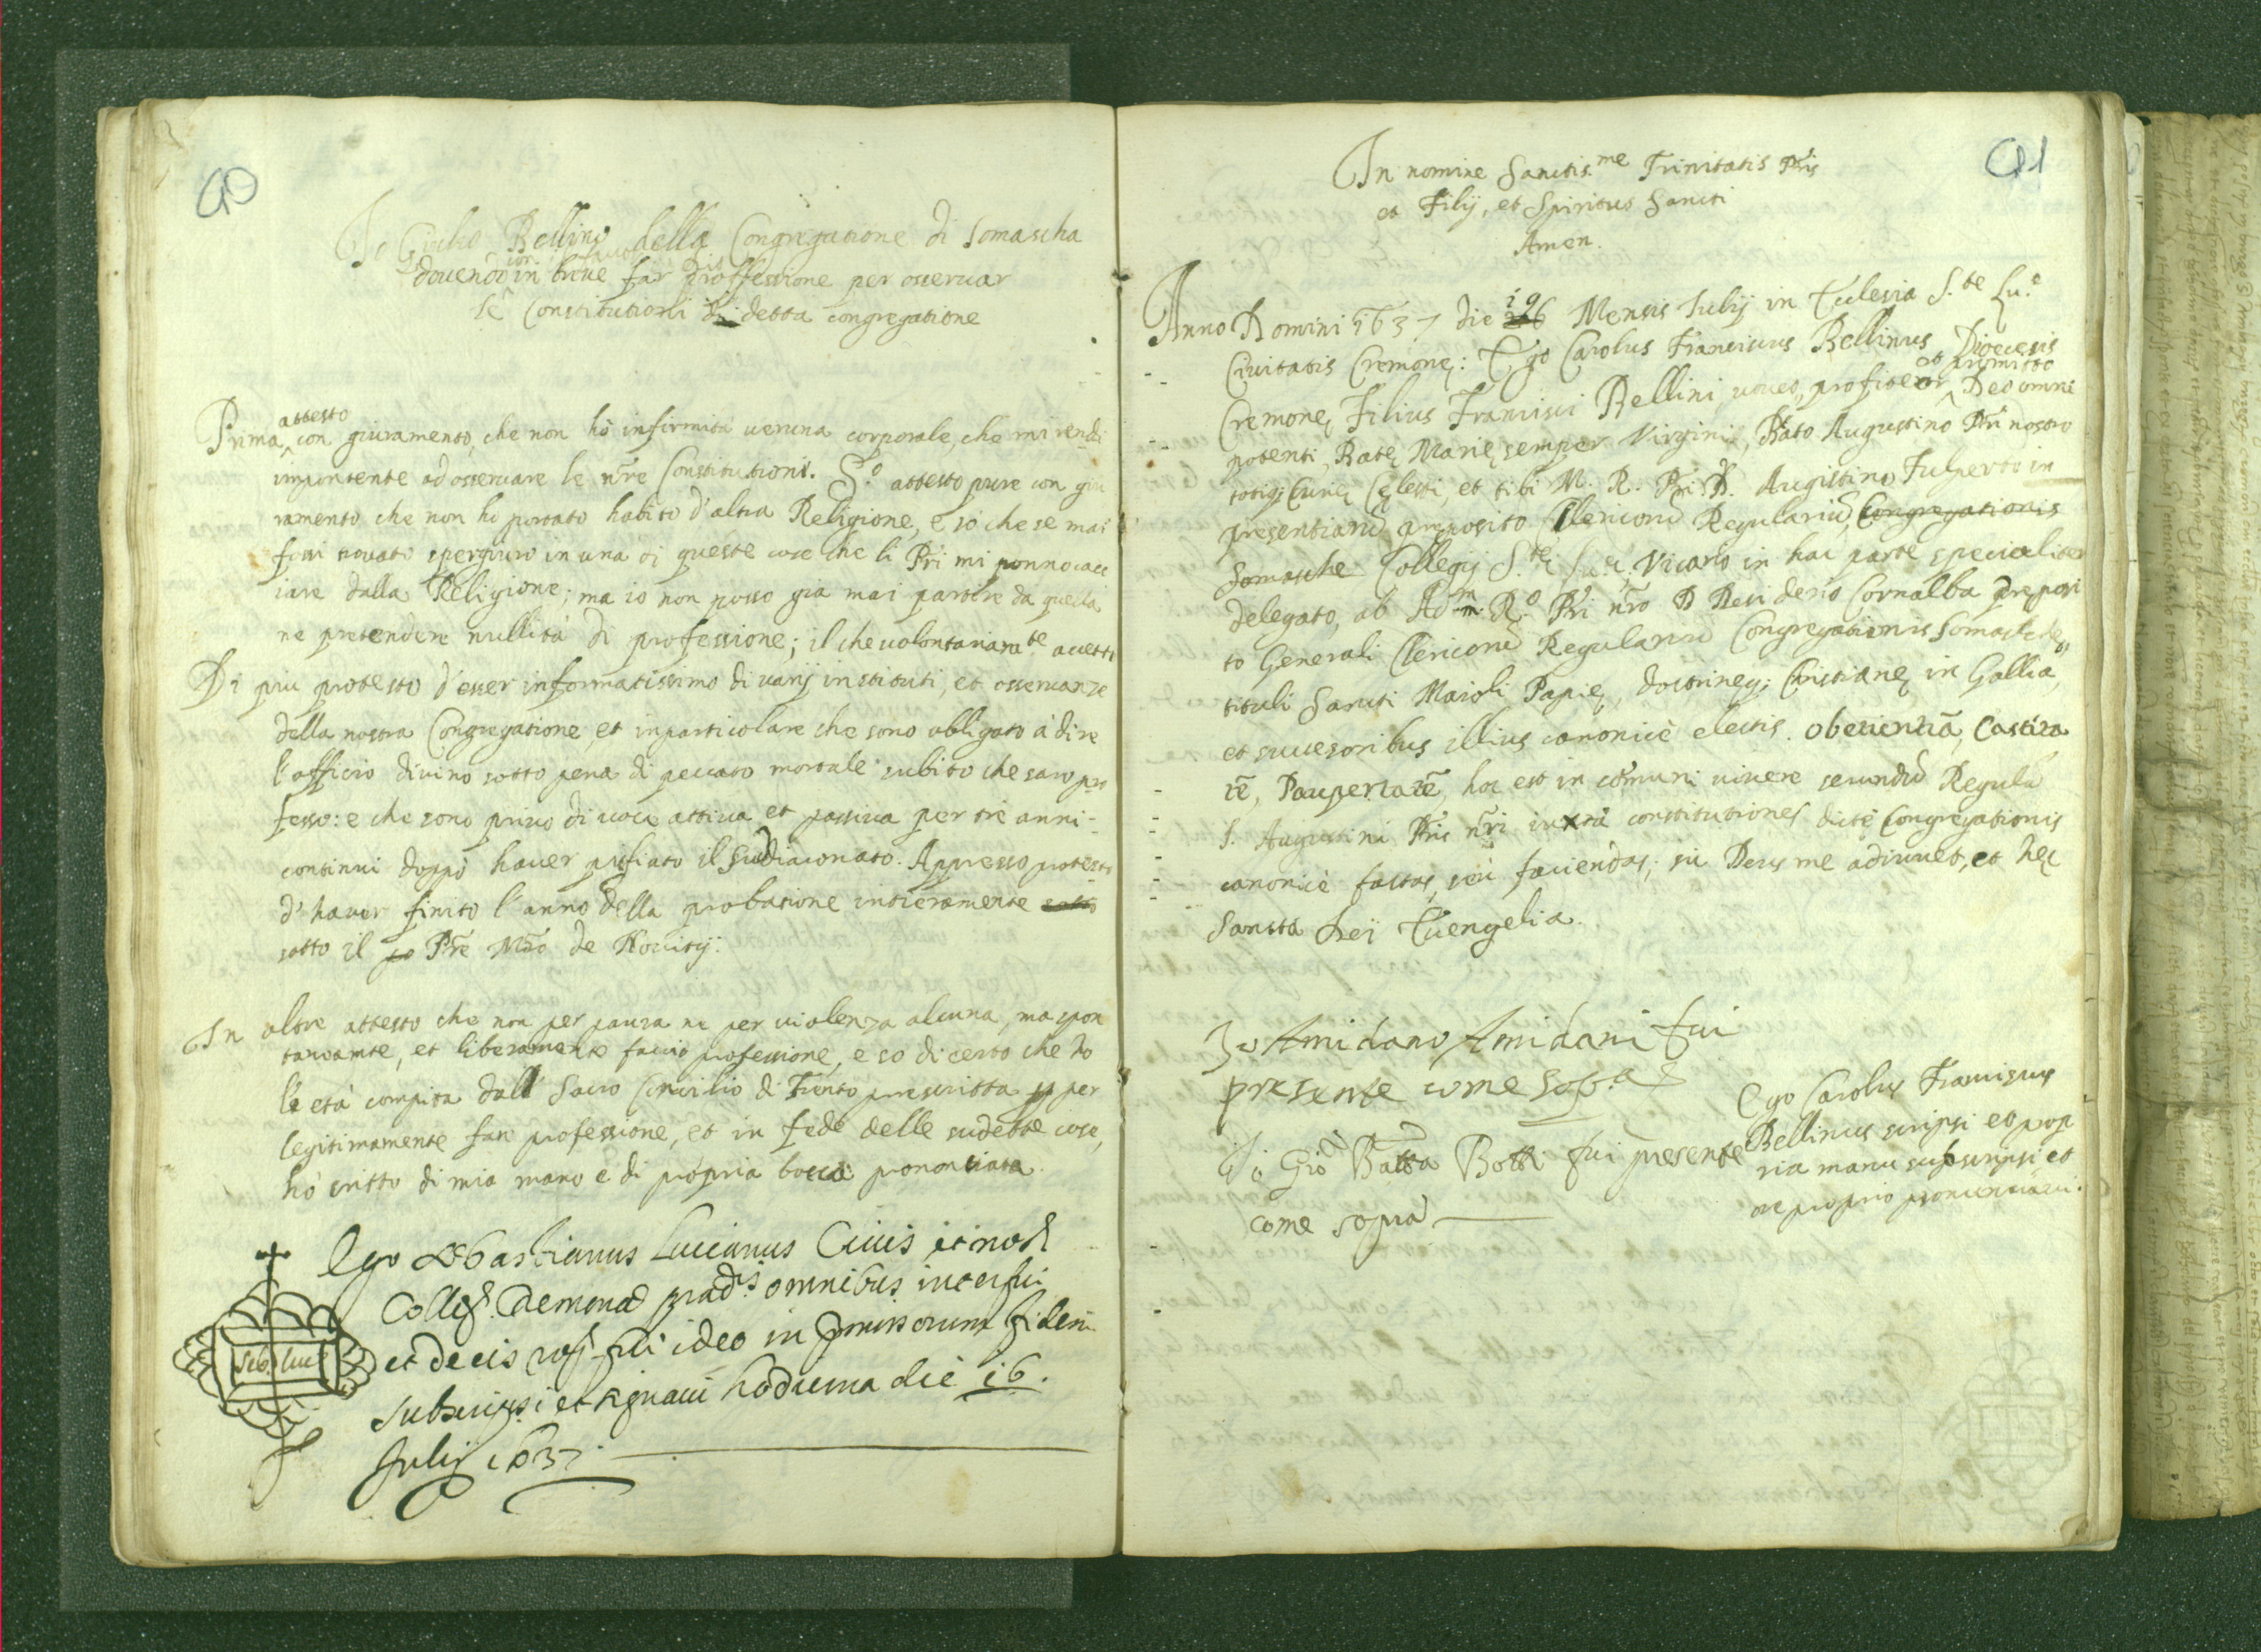 90
Io Giulio Bellino della Congregatione di Somascha
dovendo in breve far proffessione per osservar
le Constitutioni di detta congregatione
attesto
Prima, con giuramento, che non hò infirmità veruna corporale, che mi rendi
impontente ad osservare le nre Constitutioni. S.º attesto pure con giu
ramento che non hò portato habito d'altra Religione, e sò che se mai
fossi trovato spergiuro in una di queste cose che li Pri mi ponno cacc
iare dalla Religione; ma io non posso gia mai partire da quella
ne pretendere nullità di professione; il che volontariamte accetto
Di più protesto d'esser informatissimo di varij instituti, et osservanze
della nostra Congregatione, et in particolare che sono obbligato à dire
l'officio divino sotto pena di peccato mortale subito che sarò pro
fesso: e che sono privo di voce attiva et passiva per tre anni
continui doppò haver pigliato il sudiaconato. Appresso protesto
d'haver finito l'anno della probatione intieramente sotto
sotto il Pre Mro de Novitij.
In oltre attesto che non per paura ne per violenza alcuna, ma spon
taneamte, et liberamente faccio professione, e so di certo che hò
l'età compita dall Sacro Concilio di Trento prescritta per
legitimamente fare professione, et in fede delle sudette cose,
hò scritto di mia mano e di propria bocca prononciata
Ego Sebastianus Luccianus Civis et not
Colleg. Cremonæ præd.is omnibus interfui
et de eis rog. fui ideo in præmissorum fidem
subscripsi et signavi hodierna die 16.
Julij 1637.
Seb. Luc
91
In nomine Sanctis.me Trinitatis Pris
et Filij, et Spiritus Sancti
Amen.
Anno Domini 1637 die 16 Mensis Iulij in Ecclesia S.te Lu.e
Civitatis Cremonę: Ego Carolus Franciscus Bellinus Diocesis
et promitto
Cremonę, Filius Francisci Bellini, voveo, profiteor, Deo omni
potenti, Batę Marię semper Virgini, Bato Augustino Pri nostro
totiq; Curię Cęlesti, et tibi M. R. Pri D. Augustino Fulperto in
presentiarū preposito Clericorū Regulariū, Congregationis
Somasche Collegij S.tę Lu.ę. Vicario in hac parte specialiter
delegato, ab Adm. R.º Pri nro D Desiderio Cornalba preposi
to Generali Clericorū Regulariū Congregationis Somasche
tituli Sancti Maioli Papię, doctrineq; Christianę in Gallia,
et successoribus illius canonicè electis. Obedientiā, Castita
tē, Paupertatē, hoc est in cōmuni vivere secundū Regulā
S. Augustini Pris nri iuxta constitutiones dictę Congregationis
canonicè factas, seù faciendas; sic Deus me adiuvet, et hęc
Sancta Dei Evengelia.
Io Amidano Amidani fui
presente come sop.a
Io Giò Batta Botti fui presente
come sopra
Ego Carolus Franciscus
Bellinus scripsi et prop
ria manu subscripsi et
ore proprio pronunciavi.